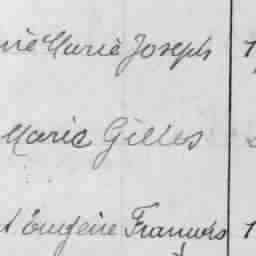 Marie Joseph 1
Marie Gilles
Eugène François 1